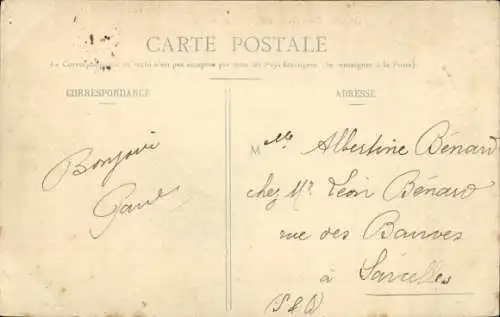 CARTE POSTALE
(La Correspondance au recto n'est pas acceptée par tous les Pays étrangers. Se renseigner à la Poste)
CORRESPONDANCE
ADRESSE
Bonjour
Paul
Mlle Albertine Bénard
chez Mr. Léon Bénard
rue des Bauves
à Sarcelles
S & O